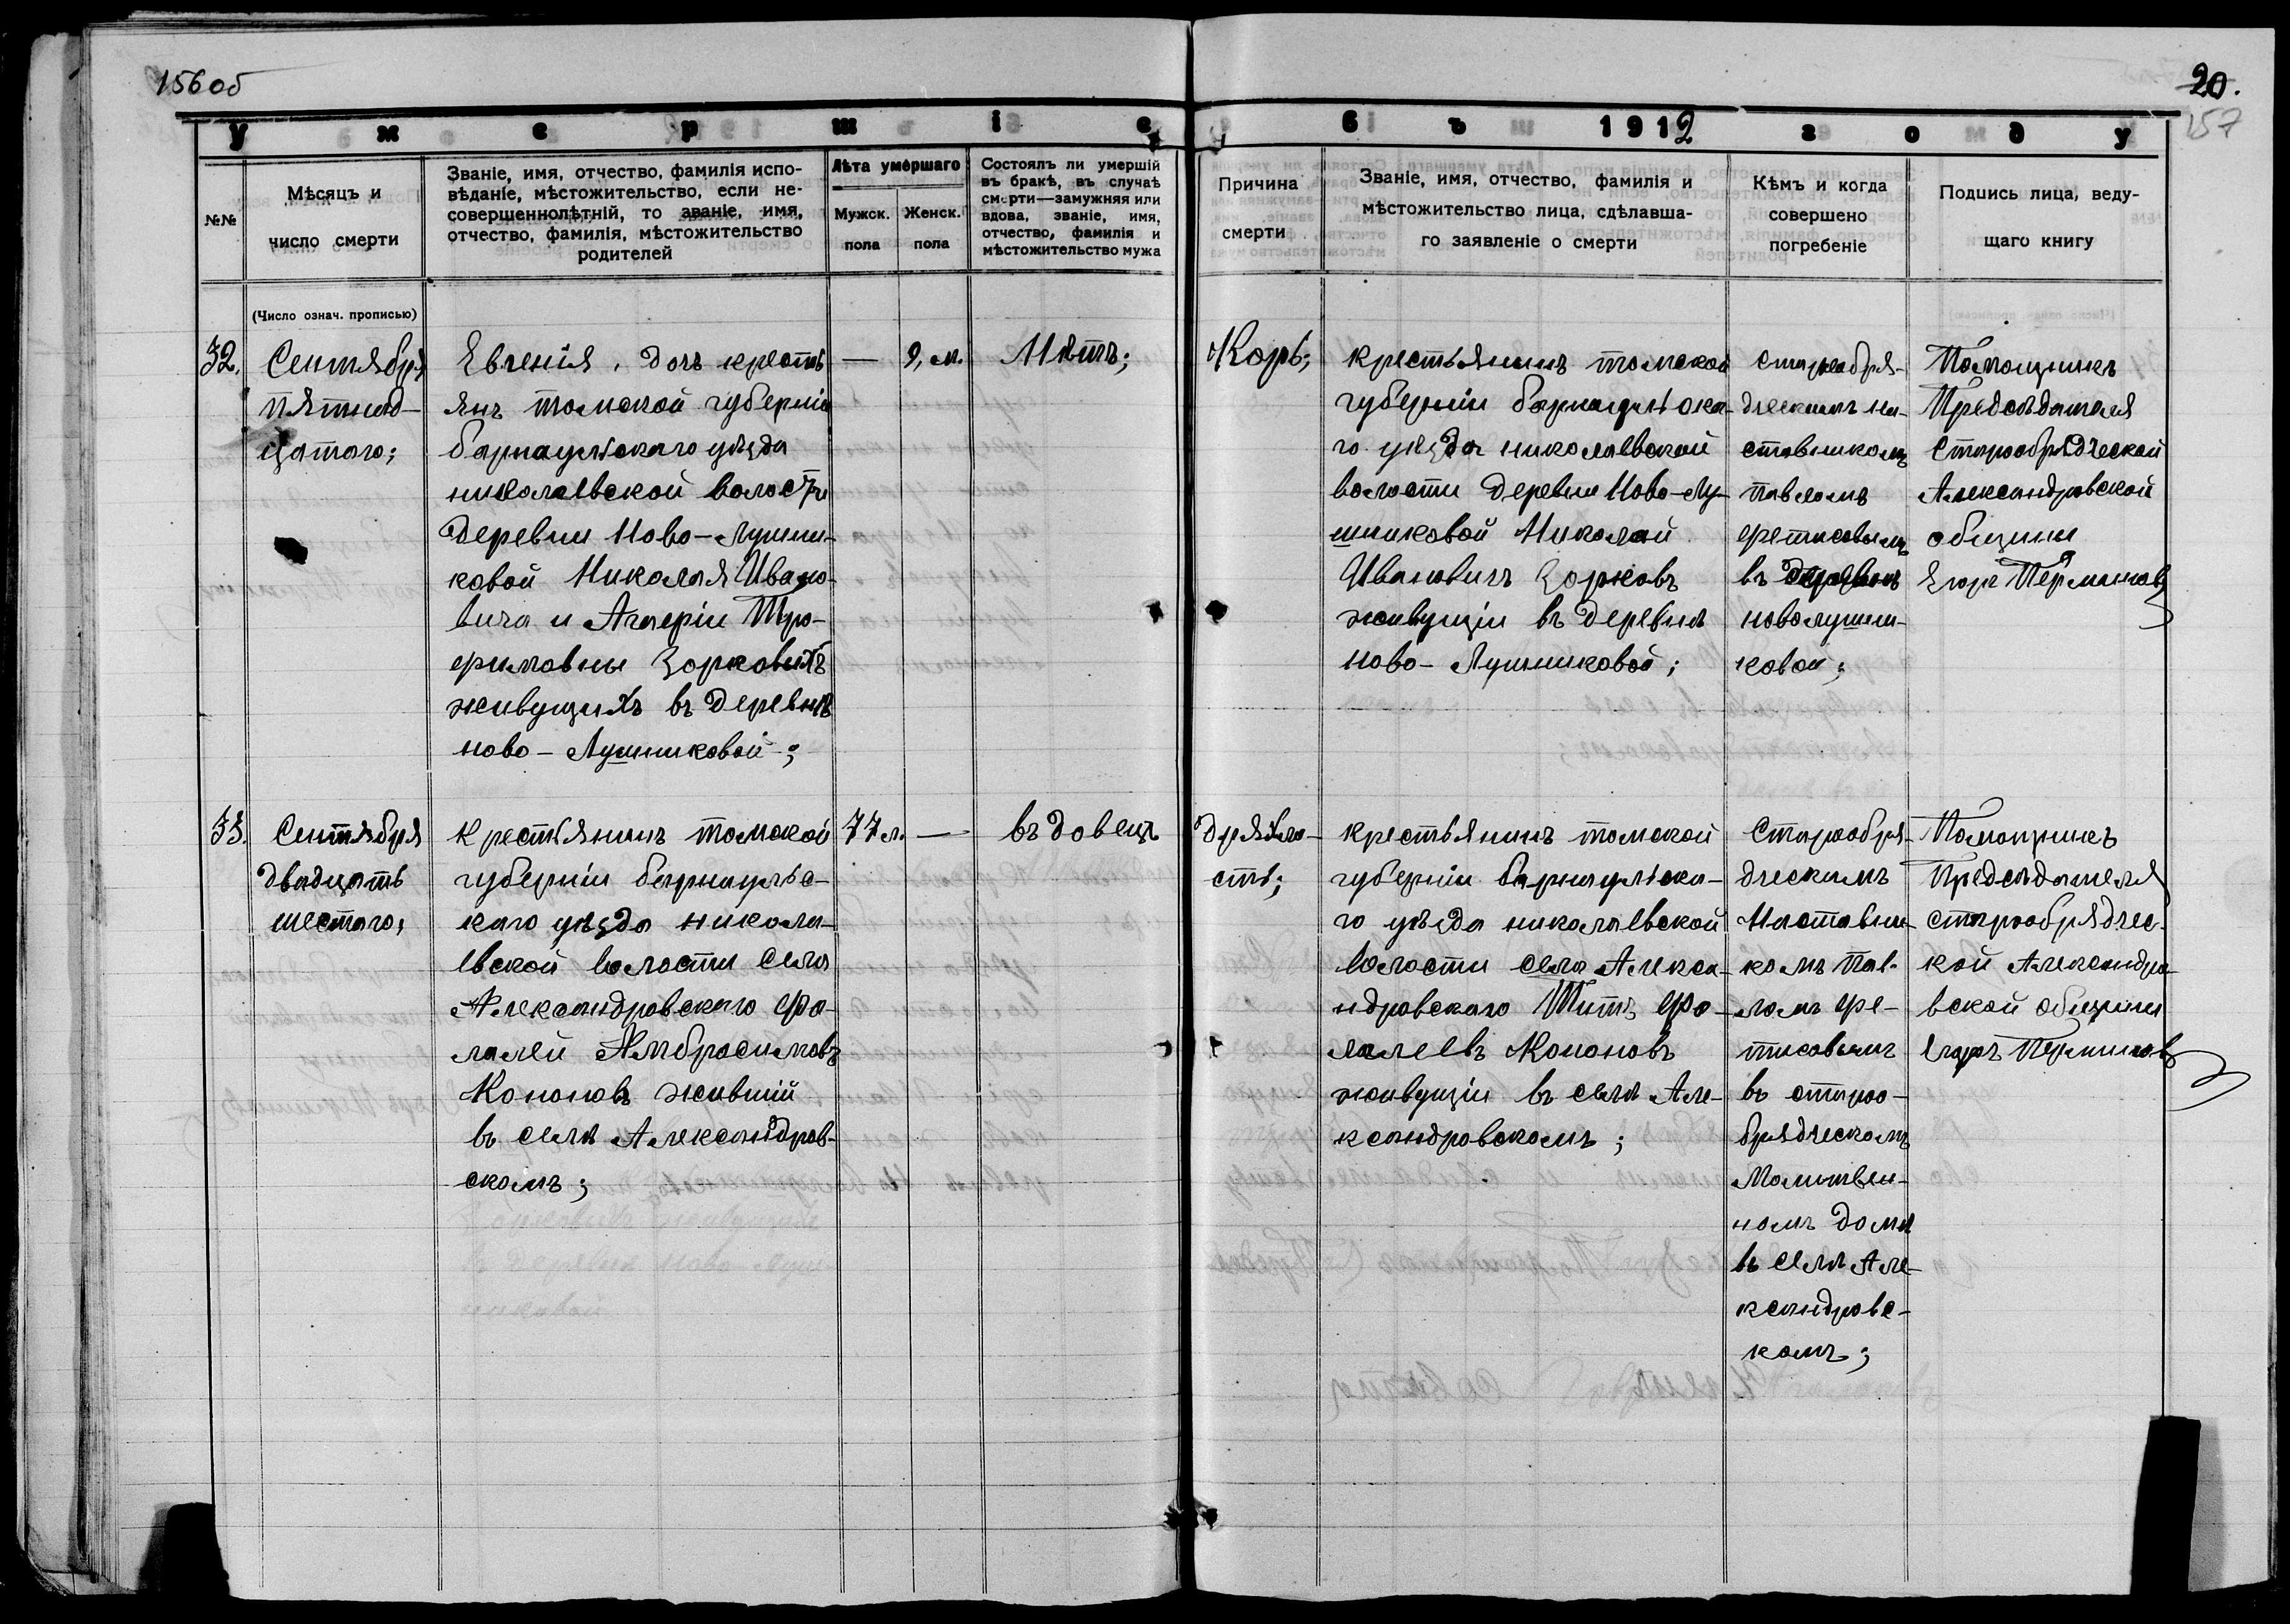 156 об
20.
157
Умершіе
въ 1912 году
№№
Мѣсяцъ и
число смерти
Званіе, имя, отчество, фамилія испо-
вѣданіе, мѣстожительство, если не-
совершеннолѣтній, то званіе, имя,
отчество, фамилія, мѣстожительство
родителей
Лѣта умершаго
Мужск.
пола
Женск.
пола
Состоялъ ли умершій
въ бракѣ, въ случаѣ
смерти—замужняя или
вдова, званіе, имя,
отчество, фамилія и
мѣстожительство мужа
Причина
смерти
Званіе, имя, отчество, фамилія и
мѣстожительство лица, сдѣлавша-
го заявленіе о смерти
Кѣмъ и когда
совершено
погребеніе
Подпись лица, веду-
щаго книгу
(Число означ. прописью)
32.
Сентября
пятнад-
цатаго;
Евгенія, дочь кресть
янъ томской губерніи
барнаульскаго уѣзда
николаевской волости
деревни Ново-Лушни-
ковой Николая Ивано-
вича и Агаѳріи Тро-
фимовны Зорковыхъ
живущихъ въ деревнѣ
ново-Лушниковой;
—
9, м.
Нѣтъ;
Корь;
крестьянинъ томской
губерніи барнаульска-
го уѣзда николаевской
волости деревни Ново-Лу-
шниковой Николай
Ивановичъ Зорковъ
живущіи въ деревнѣ
ново-Лушниковой;
старообря-
дческимъ на-
ставникомъ
павломъ
фетисовымъ
въ деревнѣ
новолушни-
ковой;
Помощникъ
Предсѣдателя
Старообрядческой
Александровской
общины
Егоръ Перминовъ
33.
Сентября
двадцать
шестого;
крестьянинъ томской
губерніи барнаульс-
каго уѣзда никола-
евской волости села
Александровскаго Фа-
лалей Амбросимовъ
Кононовъ живший
въ селѣ Александров-
скомъ;
77 л.
—
въдовецъ
дряхло-
сть;
крестьянинъ томской
губерніи барнаульска-
го уѣзда николаевской
волости села Алекса-
ндровскаго Титъ Фа-
лалеевъ Кононовъ
живущіи въ селѣ Але-
ксандровскомъ;
Старообря-
дческимъ
Наставни-
комъ Пав-
ломъ Фе-
тисовымъ
въ старо-
брядческомъ
Молитвен-
номъ домѣ
въ селѣ Але-
ксандровс-
комъ;
Помощникъ
Предсѣдателя
старообрядчес-
кой Александро-
вской общины
Егоръ Перминовъ